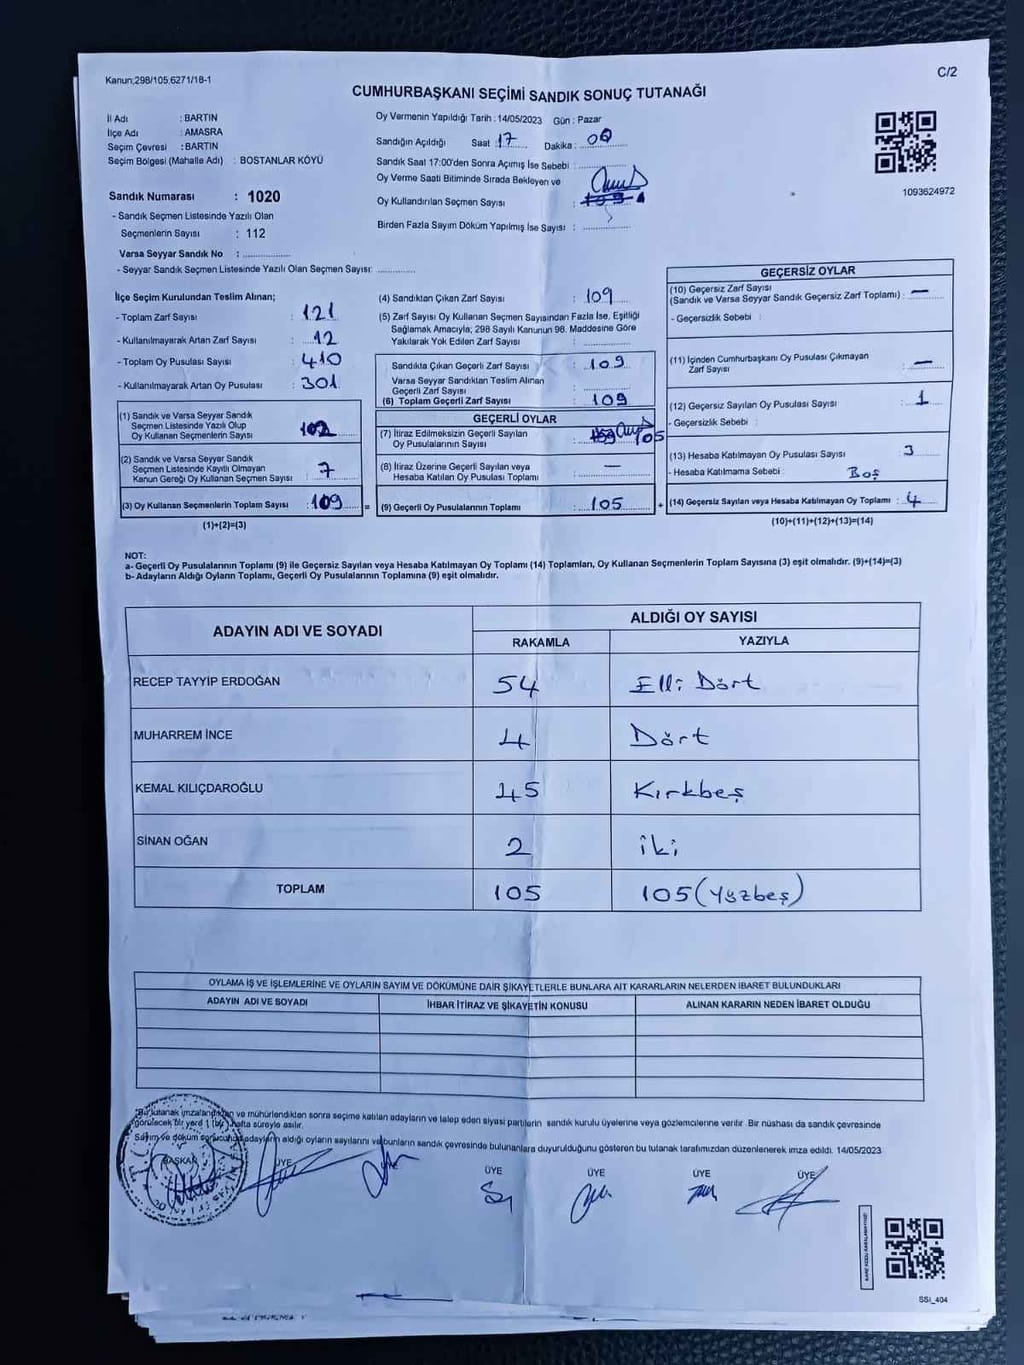 Kanun:298/105,6271/18-1
C/2
CUMHURBAŞKANI SEÇİMİ SANDIK SONUÇ TUTANAĞI
İl Adı : BARTIN
İlçe Adı : AMASRA
Seçim Çevresi : BARTIN
Seçim Bölgesi (Mahalle Adı) : BOSTANLAR KÖYÜ
Sandık Numarası : 1020
- Sandık Seçmen Listesinde Yazılı Olan
Seçmenlerin Sayısı : 112
Varsa Seyyar Sandık No : ....................
- Seyyar Sandık Seçmen Listesinde Yazılı Olan Seçmen Sayısı: ..............
Oy Vermenin Yapıldığı Tarih : 14/05/2023 Gün : Pazar
Sandığın Açıldığı Saat : 17 Dakika : 00
Sandık Saat 17:00'den Sonra Açımış İse Sebebi : ..................
Oy Verme Saati Bitiminde Sırada Bekleyen ve
Oy Kullandırılan Seçmen Sayısı :
Birden Fazla Sayım Döküm Yapılmış İse Sayısı : ..................
1093624972
İlçe Seçim Kurulundan Teslim Alınan;
- Toplam Zarf Sayısı : 121
- Kullanılmayarak Artan Zarf Sayısı : 12
- Toplam Oy Pusulası Sayısı : 410
- Kullanılmayarak Artan Oy Pusulası : 301
(1) Sandık ve Varsa Seyyar Sandık
Seçmen Listesinde Yazılı Olup
Oy Kullanan Seçmenlerin Sayısı : 102
(2) Sandık ve Varsa Seyyar Sandık
Seçmen Listesinde Kayıtlı Olmayan
Kanun Gereği Oy Kullanan Seçmen Sayısı : 7
(3) Oy Kullanan Seçmenlerin Toplam Sayısı : 109 =
(1)+(2)=(3)
(4) Sandıktan Çıkan Zarf Sayısı : 109
(5) Zarf Sayısı Oy Kullanan Seçmen Sayısından Fazla İse, Eşitliği
Sağlamak Amacıyla; 298 Sayılı Kanunun 98. Maddesine Göre
Yakılarak Yok Edilen Zarf Sayısı : ..................
Sandıkta Çıkan Geçerli Zarf Sayısı : 109
Varsa Seyyar Sandıktan Teslim Alınan
Geçerli Zarf Sayısı : ..................
(6) Toplam Geçerli Zarf Sayısı : 109
GEÇERLİ OYLAR
(7) İtiraz Edilmeksizin Geçerli Sayılan
Oy Pusulalarının Sayısı : 105
(8) İtiraz Üzerine Geçerli Sayılan veya
Hesaba Katılan Oy Pusulası Toplamı : —
(9) Geçerli Oy Pusulalarının Toplamı : 105 +
GEÇERSİZ OYLAR
(10) Geçersiz Zarf Sayısı
(Sandık ve Varsa Seyyar Sandık Geçersiz Zarf Toplamı) : —
- Geçersizlik Sebebi :
(11) İçinden Cumhurbaşkanı Oy Pusulası Çıkmayan
Zarf Sayısı : —
(12) Geçersiz Sayılan Oy Pusulası Sayısı : 1
- Geçersizlik Sebebi :
(13) Hesaba Katılmayan Oy Pusulası Sayısı : 3
- Hesaba Katılmama Sebebi : Boş
(14) Geçersiz Sayılan veya Hesaba Katılmayan Oy Toplamı : 4
(10)+(11)+(12)+(13)=(14)
NOT:
a- Geçerli Oy Pusulalarının Toplamı (9) ile Geçersiz Sayılan veya Hesaba Katılmayan Oy Toplamı (14) Toplamları, Oy Kullanan Seçmenlerin Toplam Sayısına (3) eşit olmalıdır. (9)+(14)=(3)
b- Adayların Aldığı Oyların Toplamı, Geçerli Oy Pusulalarının Toplamına (9) eşit olmalıdır.
ADAYIN ADI VE SOYADI ALDIĞI OY SAYISI
RAKAMLA YAZIYLA
RECEP TAYYİP ERDOĞAN 54 Elli Dört
MUHARREM İNCE 4 Dört
KEMAL KILIÇDAROĞLU 45 Kırkbeş
SİNAN OĞAN 2 iki
TOPLAM 105 105 (Yüzbeş)
OYLAMA İŞ VE İŞLEMLERİNE VE OYLARIN SAYIM VE DÖKÜMÜNE DAİR ŞİKAYETLERLE BUNLARA AİT KARARLARIN NELERDEN İBARET BULUNDUKLARI
ADAYIN ADI VE SOYADI İHBAR İTİRAZ VE ŞİKAYETİN KONUSU ALINAN KARARIN NEDEN İBARET OLDUĞU
"Bu tutanak imzalandıktan ve mühürlendikten sonra seçime katılan adayların ve talep eden siyasi partilerin sandık kurulu üyelerine veya gözlemcilerine verilir. Bir nüshası da sandık çevresinde
görülecek bir yere 1 (bir) hafta süreyle asılır.
Sayım ve döküm sonucunda adayların aldığı oyların sayılarını ve bunların sandık çevresinde bulunanlara duyurulduğunu gösteren bu tutanak tarafımızdan düzenlenerek imza edildi. 14/05/2023
BAŞKAN ÜYE ÜYE ÜYE ÜYE ÜYE
SSI_404